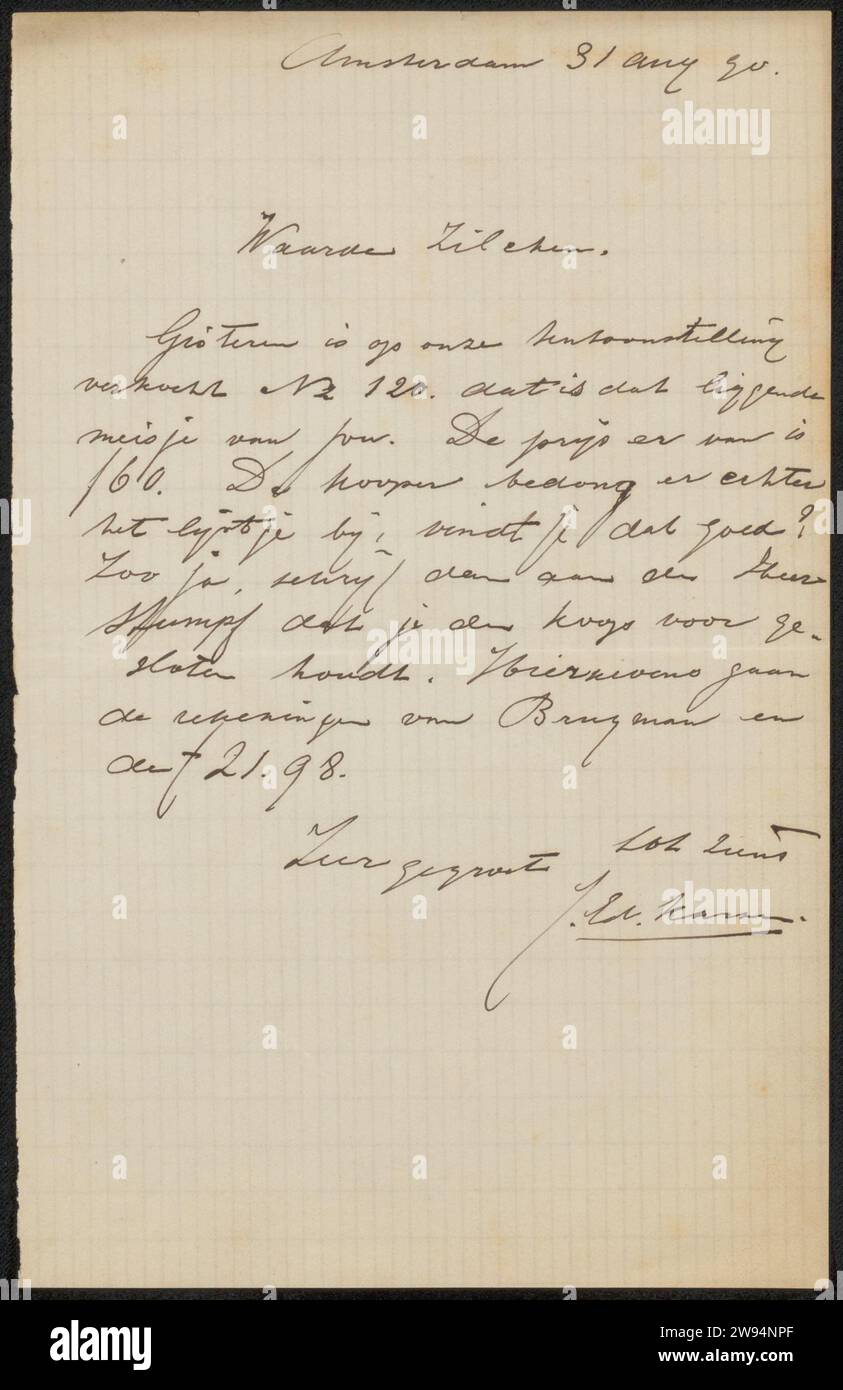 Amsterdam 31 Aug 90.
Waarde Zilcken.
Gisteren is op onze tentoonstelling
verkocht No 120. dat is dat liggende
meisje van jou. De prijs er van is
f60. De kooper bedong er echter
het lijstje bij, vindt je dat goed?
Zoo ja, schrijf dan aan den Heer
Stumpf dat je den koop voor ge-
sloten houdt. Hiernevens gaan
de rekeningen van Brugman en
de f 21.98.
Zeer gegroet tot ziens
J. Ed. Karsen.
alamy
alamy
Image ID: 2W94NPF
www.alamy.com